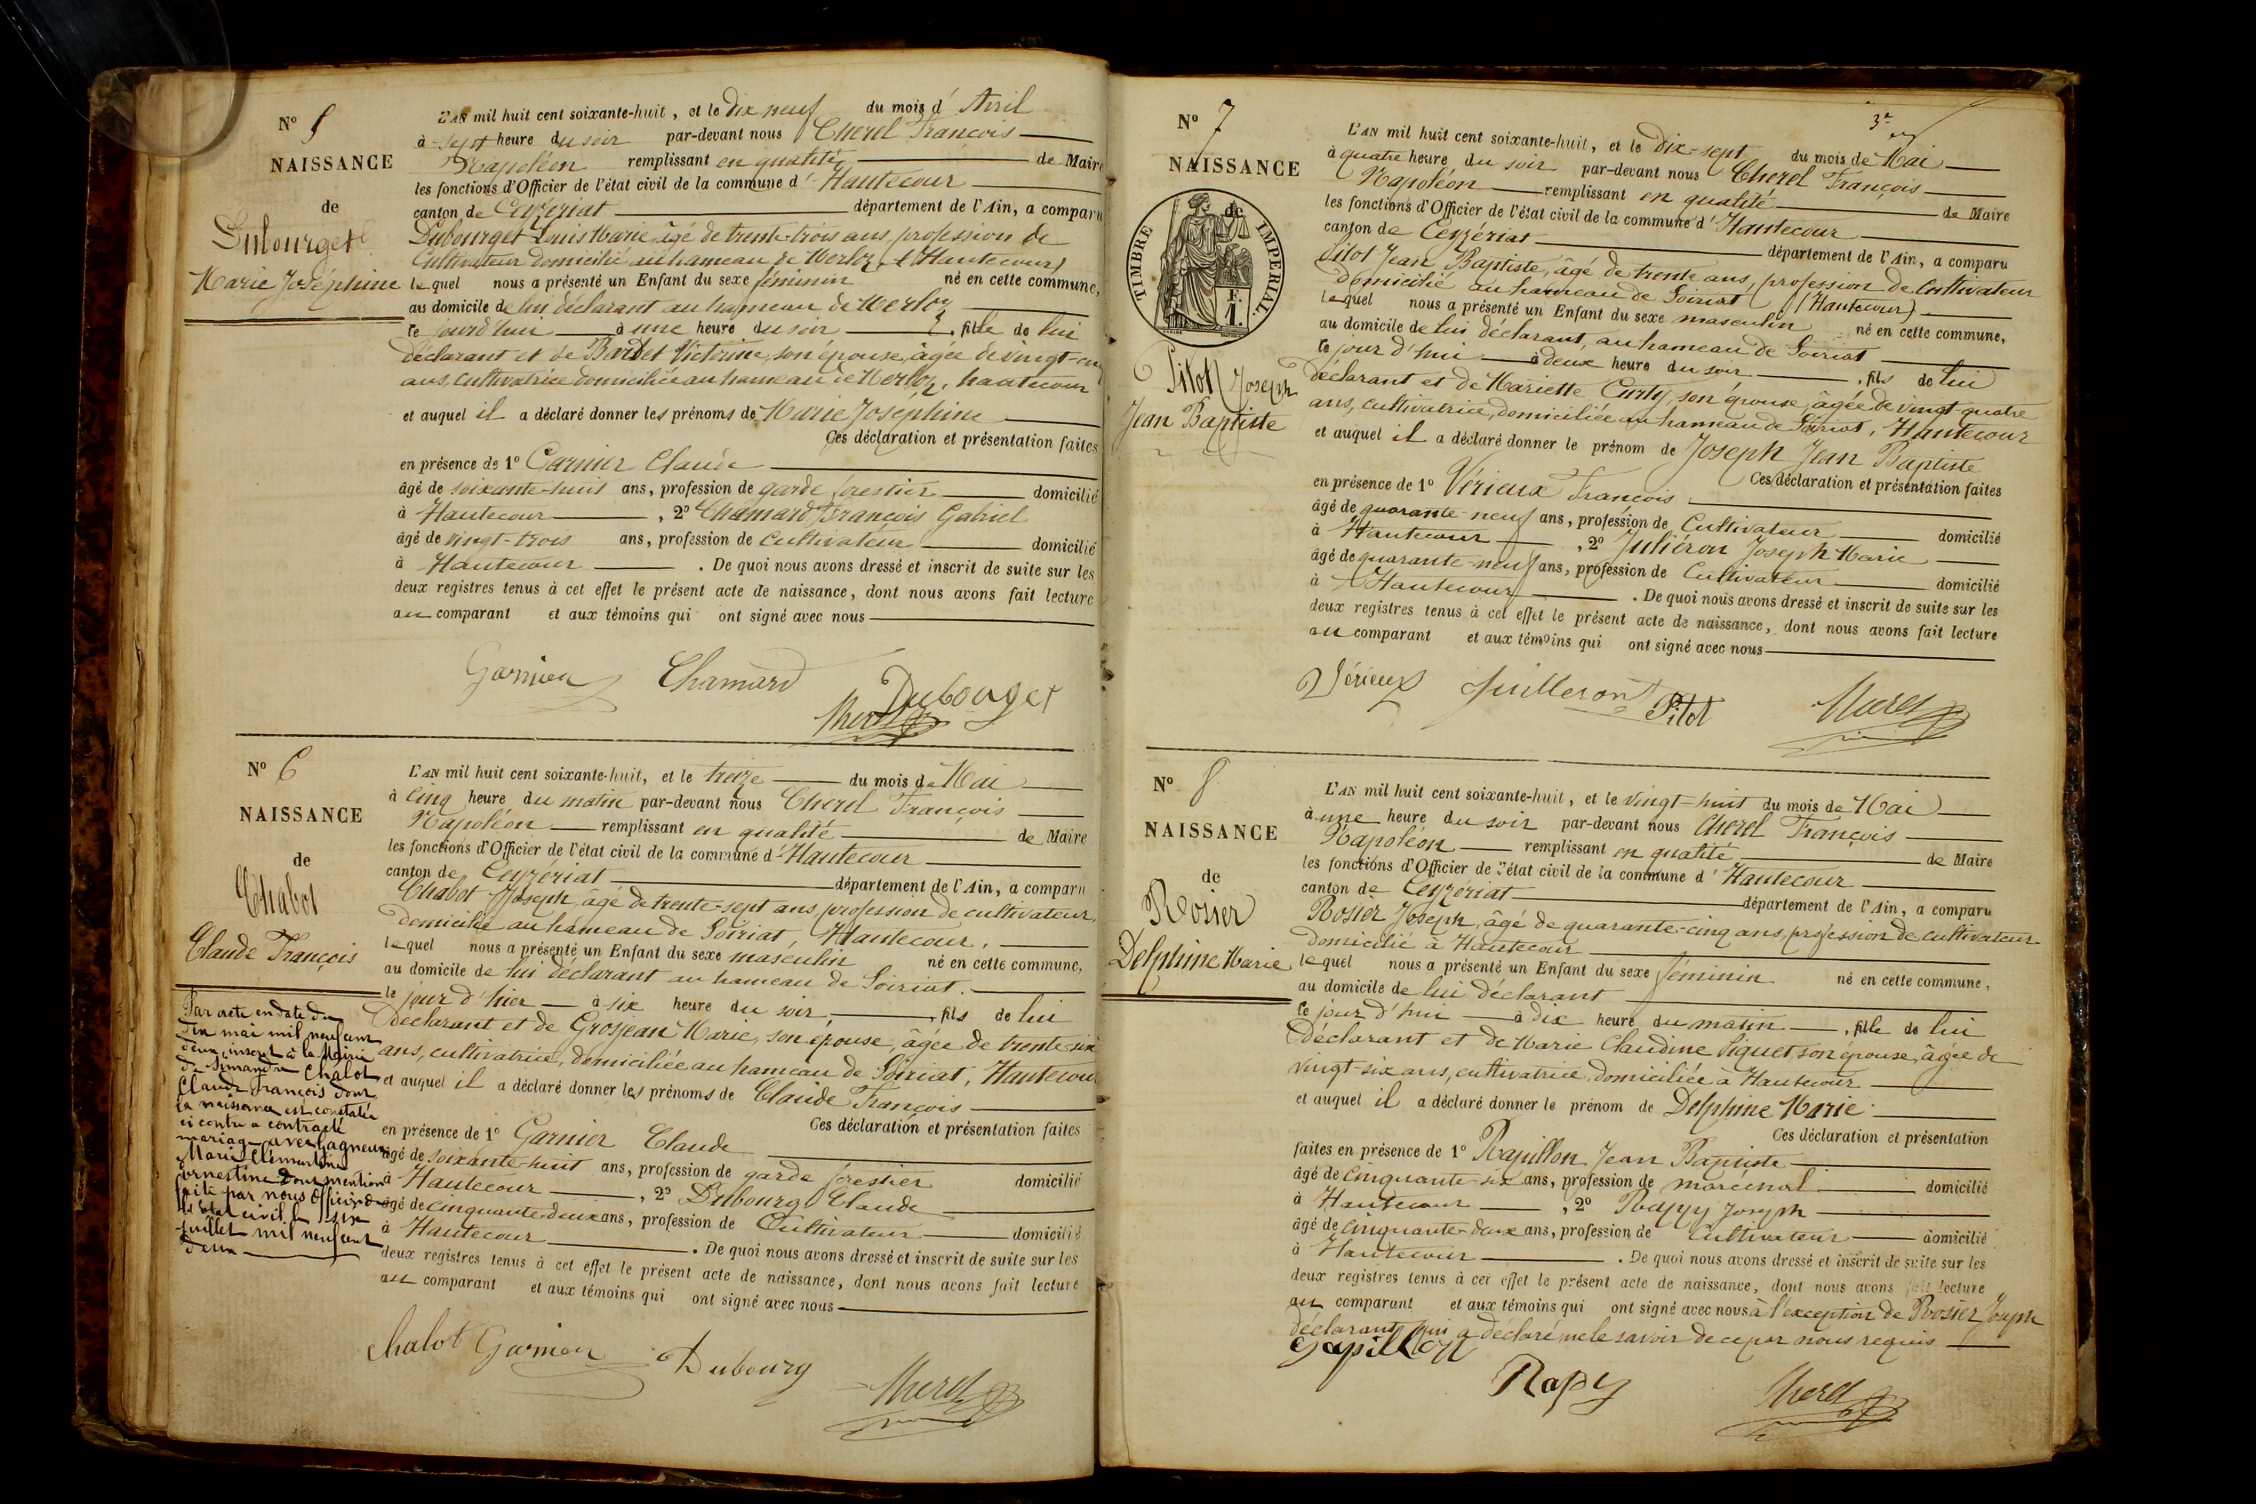 N° 5
NAISSANCE
de
Dubourget
Marie Joséphine
L'AN mil huit cent soixante-huit, et le dix neuf du mois d' Avril
à sept heure du soir par-devant nous Cherel François
Napoléon remplissant en qualité de Maire
les fonctions d'Officier de l'état civil de la commune d' Hautecour
canton de Ceyzeriat département de l'Ain, a comparu
Dubourget Louis Marie âgé de trente-trois ans, profession de
Cultivateur domicilié au hameau de Merloz, (Hautecour)
lequel nous a présenté un Enfant du sexe féminin né en cette commune,
au domicile de lui déclarant au hameau de Merloz
ce jourd'hui à une heure du soir, fille de lui
déclarant et de Bardet Victorine, son épouse, âgée de vingt-cinq
ans, cultivatrice domiciliée au hameau de Merloz, hautecour
et auquel il a déclaré donner les prénoms de Marie Joséphine
Ces déclaration et présentation faites
en présence de 1° Garnier Claude
âgé de soixante-huit ans, profession de garde forestier domicilié
à Hautecour, 2° Chamard François Gabriel
âgé de vingt-trois ans, profession de Cultivateur domicilié
à Hautecour. De quoi nous avons dressé et inscrit de suite sur les
deux registres tenus à cet effet le présent acte de naissance, dont nous avons fait lecture
au comparant et aux témoins qui ont signé avec nous
Garnier Chamard Dubouget
Cherel
N° 6
NAISSANCE
de
Chabot
Claude François
Par acte en date du
dix mai mil neuf cent
deux, inscrit à la Mairie
de Simandre Chalot
Claude François dont
la naissance est constatée
ci contre a contracté
mariage avec Gagneux
Marie Clémentine
Ernestine Dont mention
faite par nous Officier de
l'Etat civil le six
juillet mil neuf cent
deux
L'AN mil huit cent soixante-huit, et le treize du mois de Mai
à cinq heure du matin par-devant nous Cherel François
Napoléon remplissant en qualité de Maire
les fonctions d'Officier de l'état civil de la commune d' Hautecour
canton de Ceyzériat département de l'Ain, a comparu
Chabot Joseph, âgé de trente-sept ans profession de cultivateur
domicilié au hameau de Soiriat, Hautecour,
lequel nous a présenté un Enfant du sexe masculin né en cette commune,
au domicile de lui déclarant au hameau de Soiriat.
le jour d'hier à six heure du soir, fils de lui
déclarant et de Grosjean Marie, son épouse, âgée de trente-six
ans, cultivatrice, domiciliée au hameau de Soiriat, Hautecour
et auquel il a déclaré donner les prénoms de Claude François
Ces déclaration et présentation faites
en présence de 1° Garnier Claude
âgé de soixante-huit ans, profession de garde forestier domicilié
à Hautecour, 2° Dubourg Claude
âgé de cinquante-deux ans, profession de Cultivateur domicilié
à Hautecour. De quoi nous avons dressé et inscrit de suite sur les
deux registres tenus à cet effet le présent acte de naissance, dont nous avons fait lecture
au comparant et aux témoins qui ont signé avec nous
Chalot Garnier Dubourg
Cherel
3e
N° 7
NAISSANCE
de
TIMBRE IMPERIAL.
F.
1.
Pitot Joseph
Jean Baptiste
L'AN mil huit cent soixante-huit, et le dix-sept du mois de Mai
à quatre heure du soir par-devant nous Cherel François
Napoléon remplissant en qualité de Maire
les fonctions d'Officier de l'état civil de la commune d' Hautecour
canton de Ceyzériat département de l'Ain, a comparu
Pitot Jean Baptiste, âgé de trente ans, profession de Cultivateur
domicilié au hameau de Soiriat (Hautecour)
lequel nous a présenté un Enfant du sexe masculin né en cette commune,
au domicile de lui déclarant, au hameau de Soiriat
ce jour d'hui à deux heure du soir, fils de lui
déclarant et de Mariette Curty, son épouse, âgée de vingt-quatre
ans, cultivatrice, domiciliée au hameau de Soiriat, Hautecour
et auquel il a déclaré donner le prénom de Joseph Jean Baptiste
Ces déclaration et présentation faites
en présence de 1° Vérieux François
âgé de quarante-neuf ans, profession de Cultivateur domicilié
à Hautecour, 2° Juliéron Joseph Marie
âgé de quarante-neuf ans, profession de Cultivateur domicilié
à Hautecour. De quoi nous avons dressé et inscrit de suite sur les
deux registres tenus à cet effet le présent acte de naissance, dont nous avons fait lecture
au comparant et aux témoins qui ont signé avec nous
Vérieux Juilleron Pitot Cherel
N° 8
NAISSANCE
de
Rosier
Delphine Marie
L'AN mil huit cent soixante-huit, et le vingt-huit du mois de Mai
à une heure du soir par-devant nous Cherel François
Napoléon remplissant en qualité de Maire
les fonctions d'Officier de l'état civil de la commune d' Hautecour
canton de Ceyzériat département de l'Ain, a comparu
Rosier Joseph, âgé de quarante-cinq ans, profession de cultivateur
domicilié à Hautecour
lequel nous a présenté un Enfant du sexe féminin né en cette commune,
au domicile de lui déclarant
ce jour d'hui à dix heure du matin, fille de lui
déclarant et de Marie Claudine Piquet son épouse, âgée de
vingt-six ans, cultivatrice, domiciliée à Hautecour
et auquel il a déclaré donner le prénom de Delphine Marie
Ces déclaration et présentation
faites en présence de 1° Rapillon Jean Baptiste
âgé de cinquante-six ans, profession de maréchal domicilié
à Hautecour, 2° Rappy Joseph
âgé de cinquante-deux ans, profession de Cultivateur domicilié
à Hautecour. De quoi nous avons dressé et inscrit de suite sur les
deux registres tenus à cet effet le présent acte de naissance, dont nous avons fait lecture
au comparant et aux témoins qui ont signé avec nous à l'exception de Rosier Joseph
déclarant qui a déclaré ne le savoir de ce par nous requis
Gapillon
Rapy Cherel